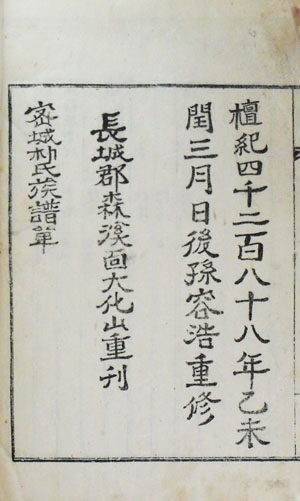 檀紀四千二百八十八年乙未
閏三月日後孫容浩重修
長城郡森溪面大化山重刊
密城朴氏族譜單